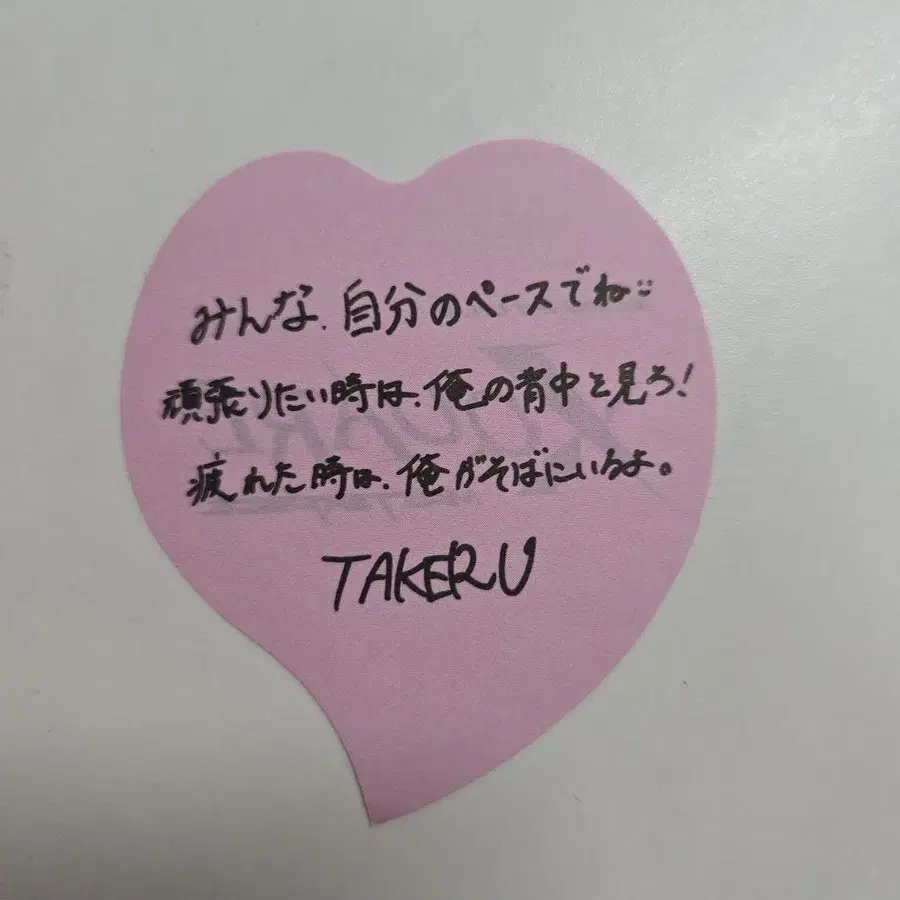 みんな、自分のペースでね
頑張りたい時は、俺の背中を見ろ!
疲れた時は、俺がそばにいるよ。
TAKERU